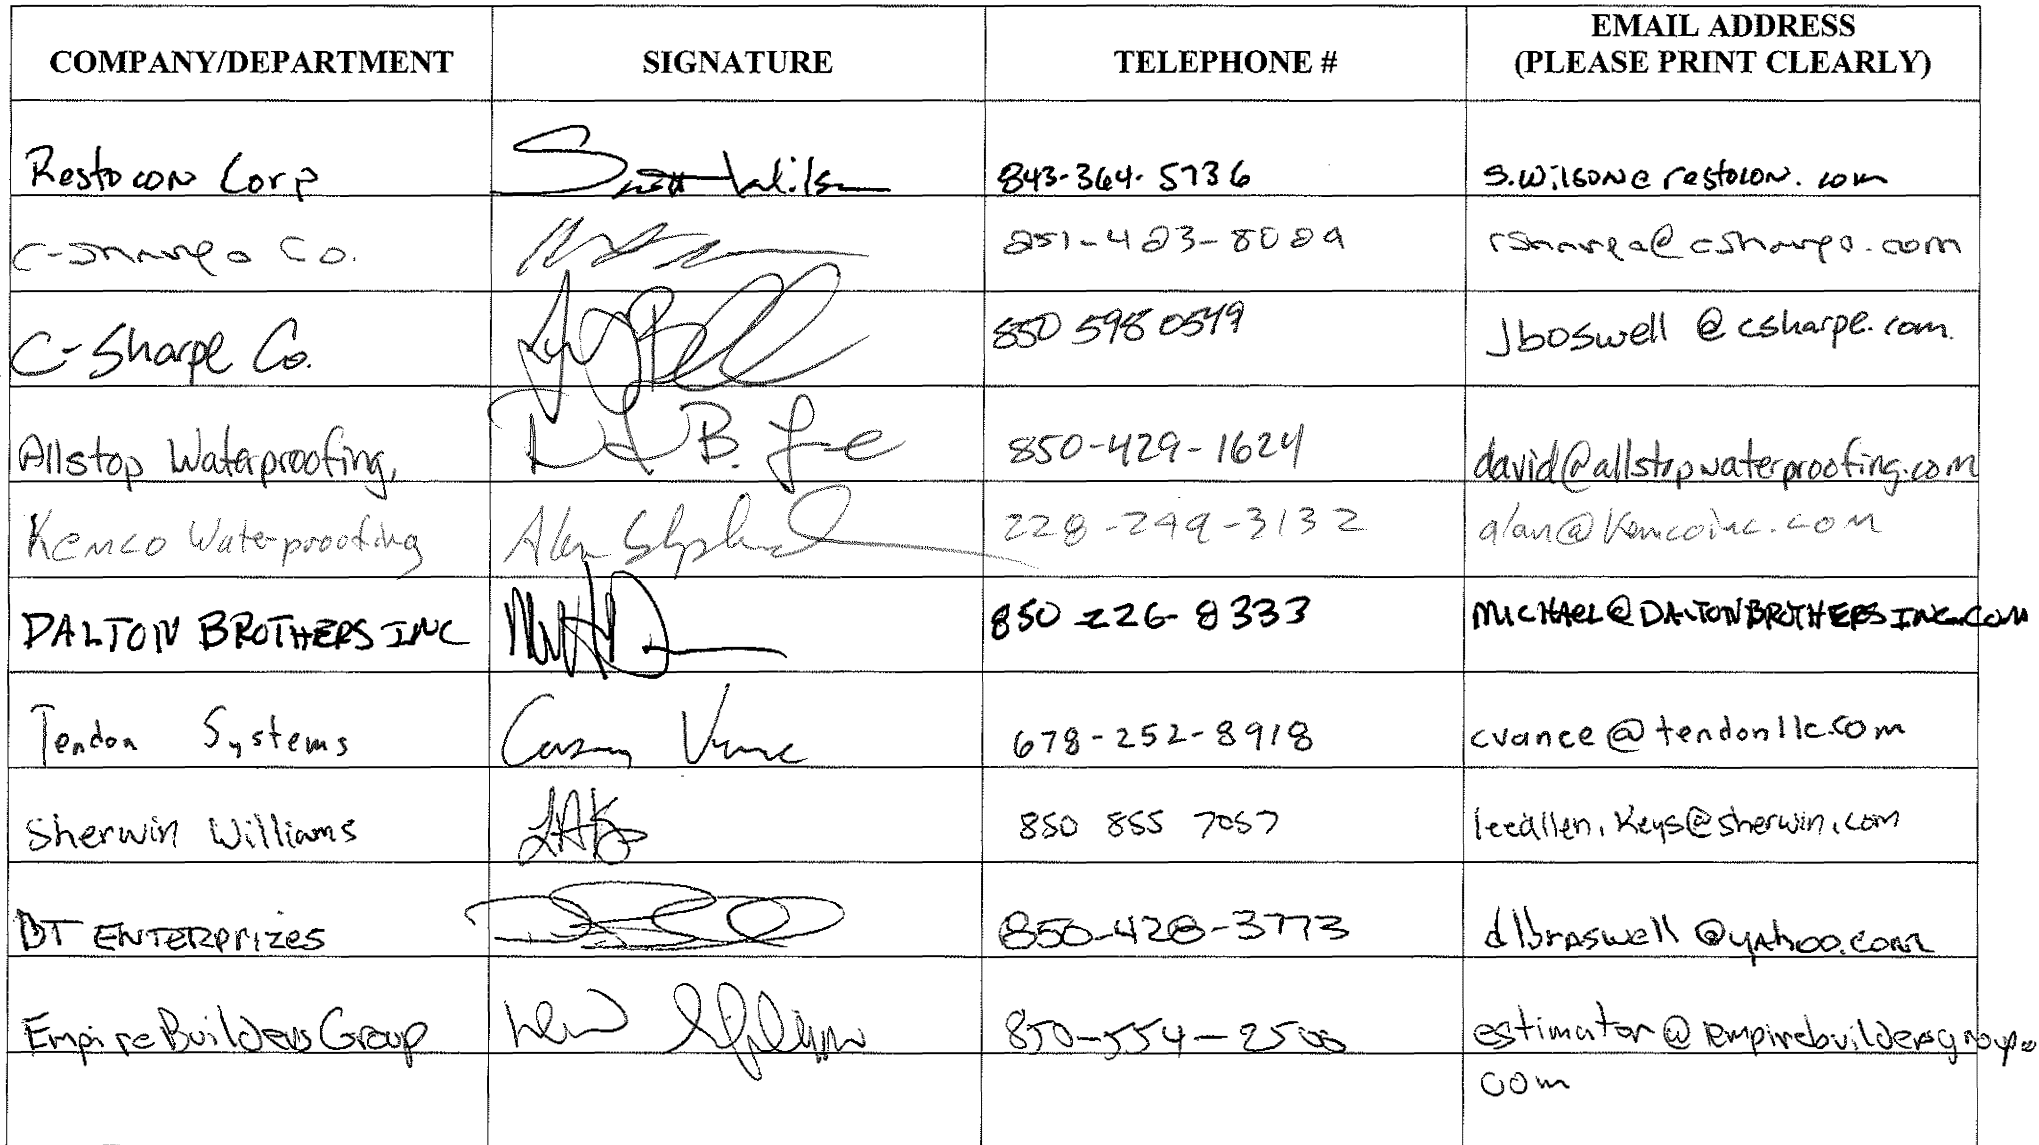 COMPANY/DEPARTMENT SIGNATURE TELEPHONE # EMAIL ADDRESS
(PLEASE PRINT CLEARLY)
Restocon Corp Scott Wilson 843-364-5736 s.wilson@restocon.com
C-Sharpe Co. 251-423-8029 rsharpe@csharpe.com
C-Sharpe Co. 850 598 0549 Jboswell@csharpe.com
Allstop Waterproofing, D B. Lee 850-429-1624 david@allstopwaterproofing.com
Kemco Waterproofing Alan 228-249-3132 alan@Kemcoinc.com
DALTON BROTHERS INC 850 226-8333 MICHAEL@DALTONBROTHERSINC.COM
Tendon Systems Casey Vance 678-252-8918 cvance@tendonllc.com
Sherwin Williams 850 855 7057 leeallen.Keys@sherwin.com
DT ENTERPRIZES 850-428-3773 dlbraswell@yahoo.com
Empire Builders Group 850-554-2500 estimator@empirebuildersgroup.
com